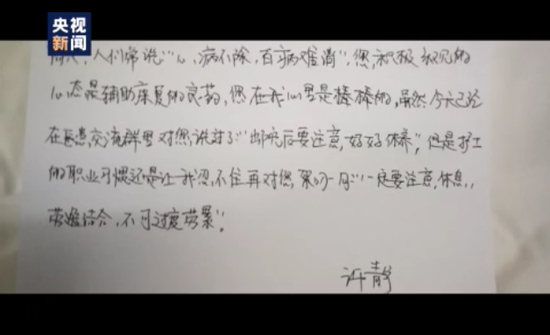 央视
新闻
人们常说“心病不除，百病难消”，您积极乐观的
心态是辅助康复的良药，您在我心里是棒棒的，虽然今天已经
在医患交流群里对您说过了“出院后要注意，好好休养”，但是护士
的职业习惯还是让我忍不住再对您一定要注意休息，
劳逸结合，不可过度劳累”。
许静